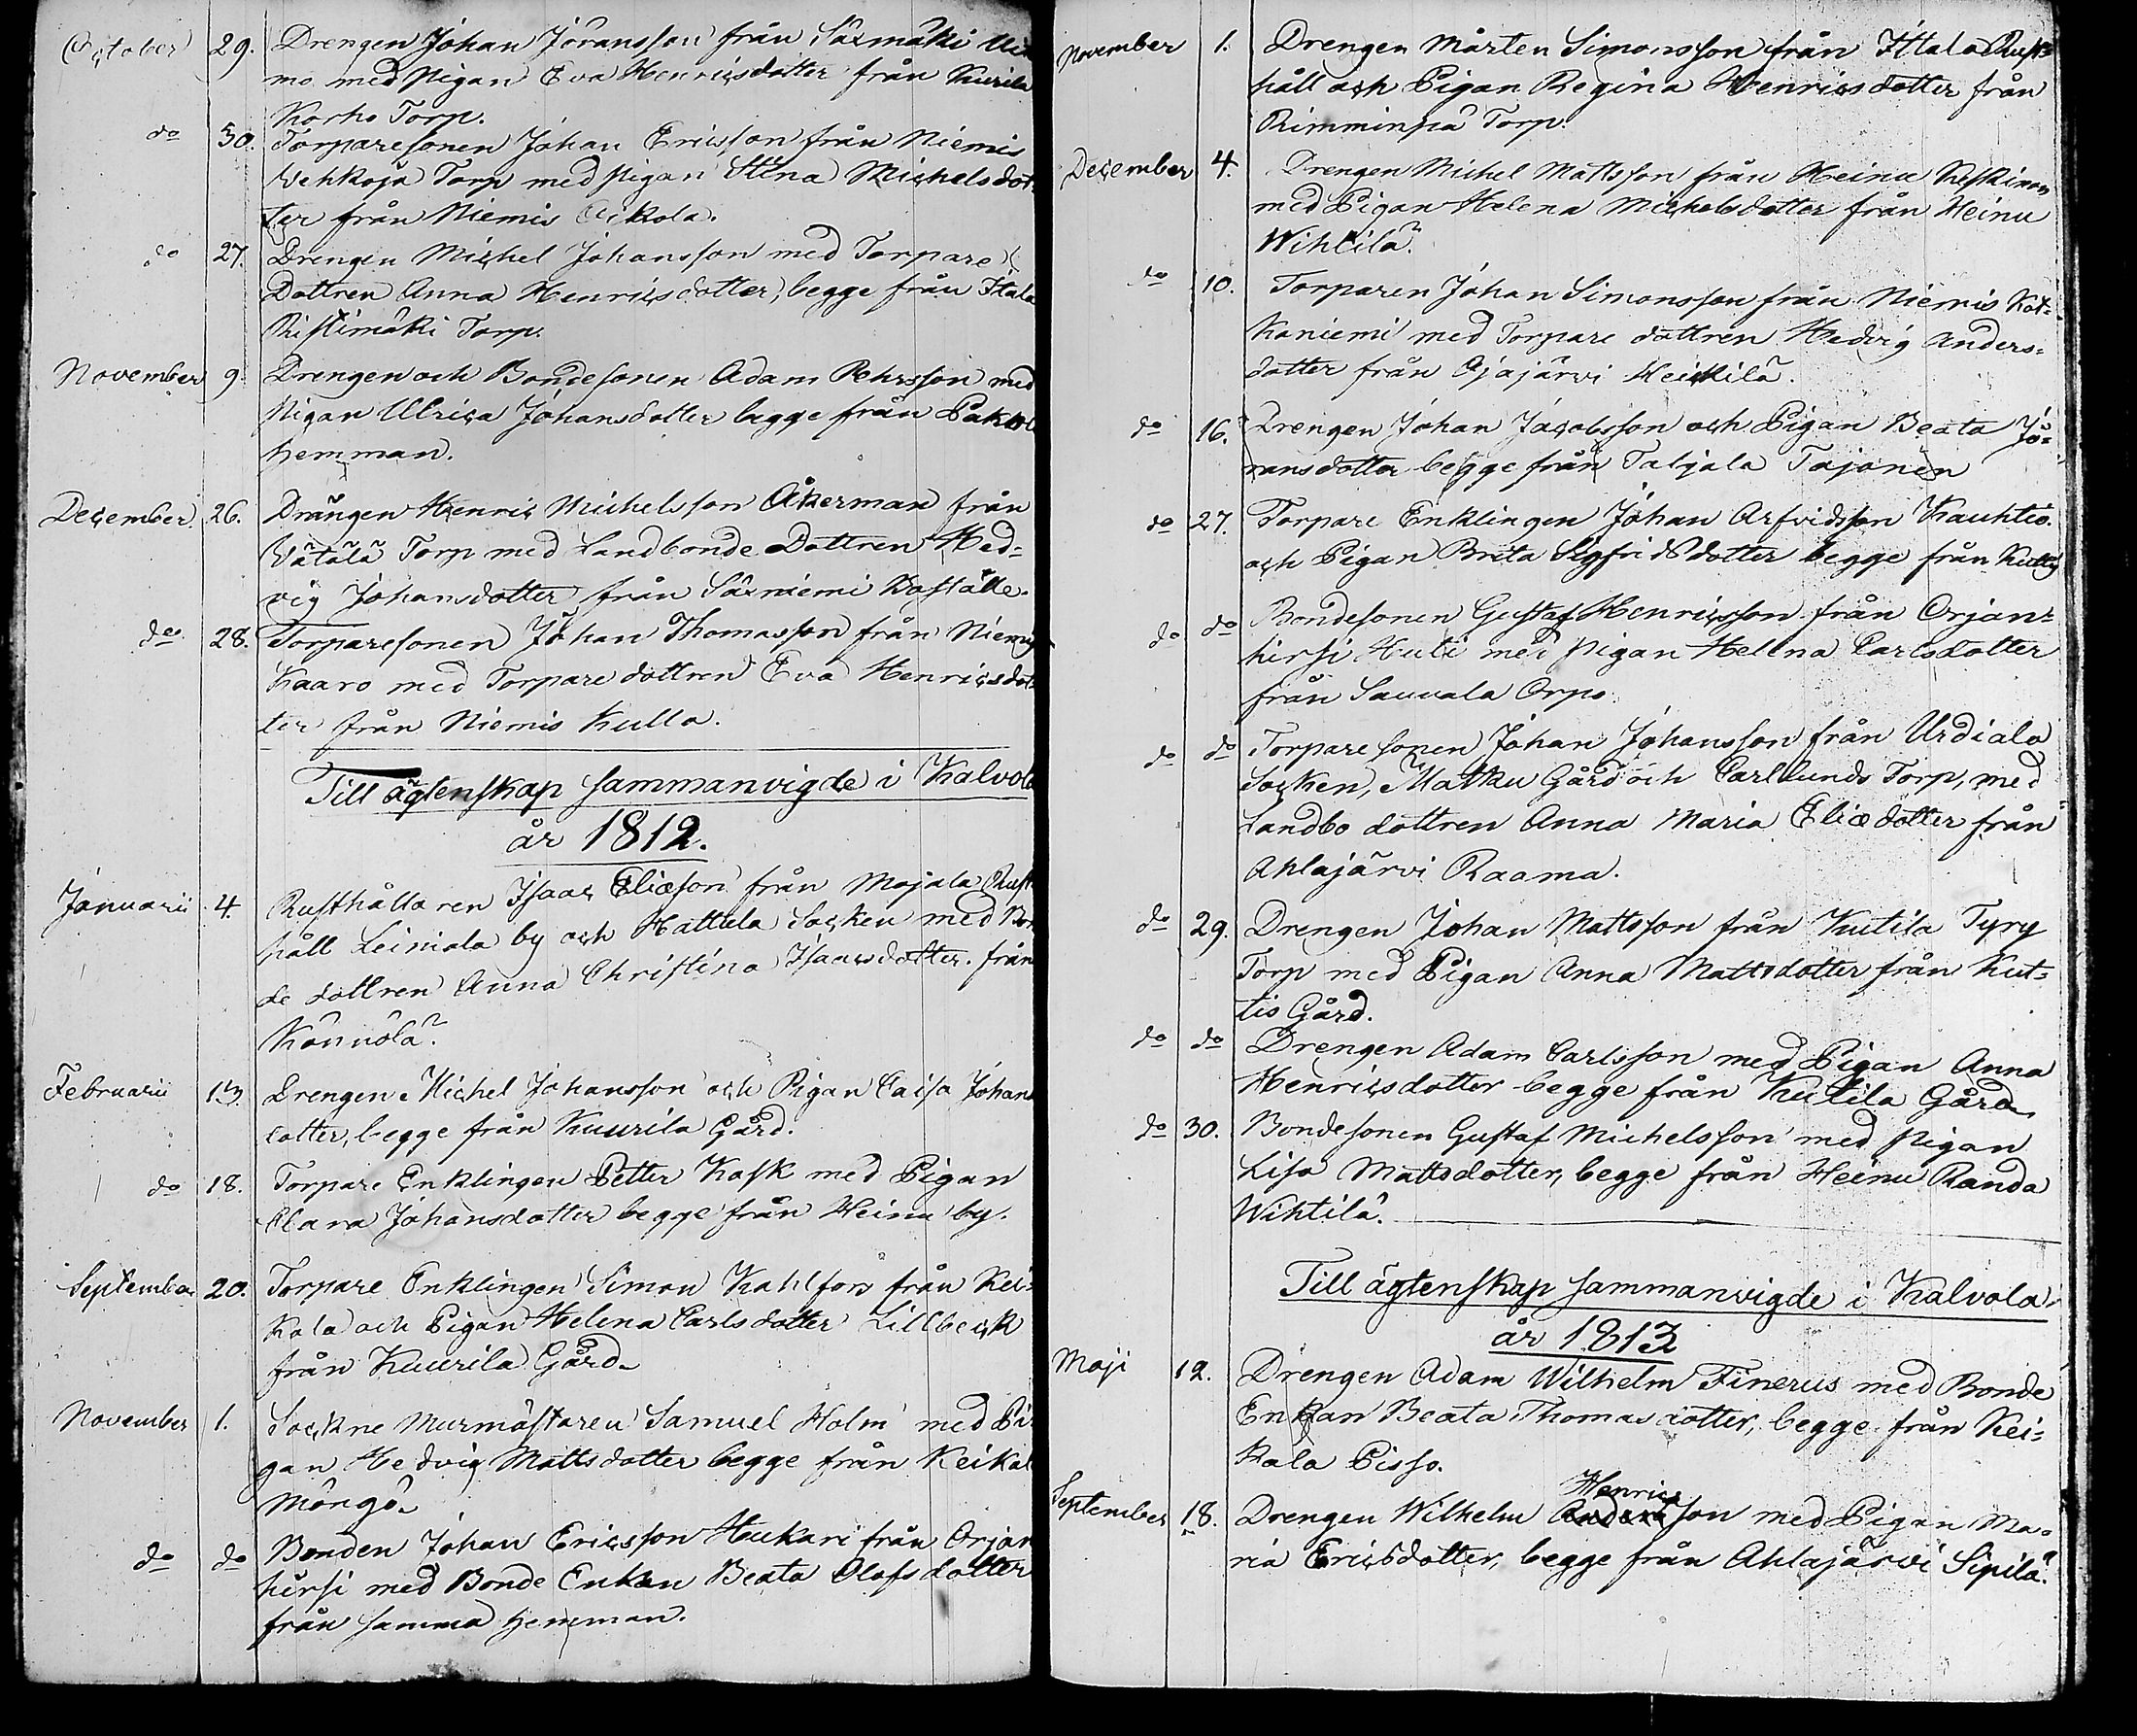 October 29. Drengen Johan Jöransson från Säxmäki
mo med Pigan Eva Henricsdotter från Kurila
Korho Torp.
do 30. Torparesonen Johan Ericsson från Niemis
Vehkoja Torp med pigan Stina Michelsdot-
ter från Niemis Aikola.
do 27. Drengen Michel Johansson med Torpare
Dottren Anna Henricsdotter, begge från Ittala
Ristimäki Torp.
November 9 Drengen och Bondesonen Adam Pehrsson med
Pigan Ulrica Johansdotter begge från
hemman.
December 26. Drängen Henric Michelsson Åkerman från
Vätälä Torp med Landbonde Dottren Hed-
vig Johansdotter från Säxniemi Boställe.
do 28. Torparesonen Johan Thomasson från Niemis
Kaaro med Torpare dottren Eva Henricsdot-
ter från Niemis Kulla.
Till ägtenskap sammanvigde i Kalvola
år 1812.
Januarii 4. Rusthållaren Isaac Eliæson från Mojala Rust
håll Leiniala by och Hattula Socken med Bon
de dottren Anna Christina Isaacsdotter från
Könnölä.
Februarii 13. Drengen Michel Johansson och Pigan Caisa Johans
dotter, begge från Kuurila Gård.
do 18. Torpare Enklingen Petter Kask med Pigan
Clara Johansdotter begge från Heinu by.
September 20. Torpare Enklingen Simon Kahlfors från Kei-
kala och Pigan Helena Carlsdotter Lillbeck
från Kuurila Gård.
November 1. Sockne Murmästaren Samuel Holm med Pi-
gan Hedvig Mattsdotter begge från Keikala
Möngö.
do do Bonden Johan Ericsson Hukari från Orjan
hirsi med Bonde Enkan Beata Olofsdotter
från samma hemman.
November 1. Drengen Mårten Simonsson från Ittala Rust-
håll och Pigan Regina Henricsdotter från
Rimminpä Torp.
December 4. Drengen Michel Mattsson från Heinu Keskinen
med Pigan Helena Michelsdotter från Heinu
Wihtilä.
do 10. Torparen Johan Simonsson från Niemis Kot-
kaniemi med Torpare dottren Hedvig Anders-
dotter från Ajajärvi Heickilä.
do 16. Drengen Johan Jacobsson och Pigan Beata Jö-
ransdotter begge från Taljala Tajonen
do 27. Torpare Enklingen Johan Arfvidsson Kauhtio
och Pigan Brita Sigfridsdotter begge från
do do Bondesonen Gustaf Henricsson från Orjan-
hirsi Huti med Pigan Helena Carlsdotter
från Sauvala Orpo.
do do Torparesonen Johan Johansson från Urdiala
Socken, Matku Gård och Carllunds Torp, med
Landbo dottren Anna Maria Eliædotter från
Ahlajärvi Raama.
do 29. Drengen Johan Mattsson från Kutila Tyry
Torp med Pigan Anna Mattsdotter från Kut-
tis Gård.
do do Drengen Adam Carlsson med Pigan Anna
Henricsdotter begge från Kutila Gård
do 30. Bondesonen Gustaf Michelsson med Pigan
Lisa Mattsdotter, begge från Heinu Randa
Wihtilä.
Till ägtenskap sammanvigde i Kalvola
år 1813
Maji 12. Drengen Adam Wilhelm Finerus med Bonde
Enkan Beata Thomasdotter, begge från Kei-
kala Pisso.
Henrics
September 18. Drengen Wilhelm Andersson med Pigan Ma-
ria Ericsdotter, begge från Ahlajärvi Sipilä.